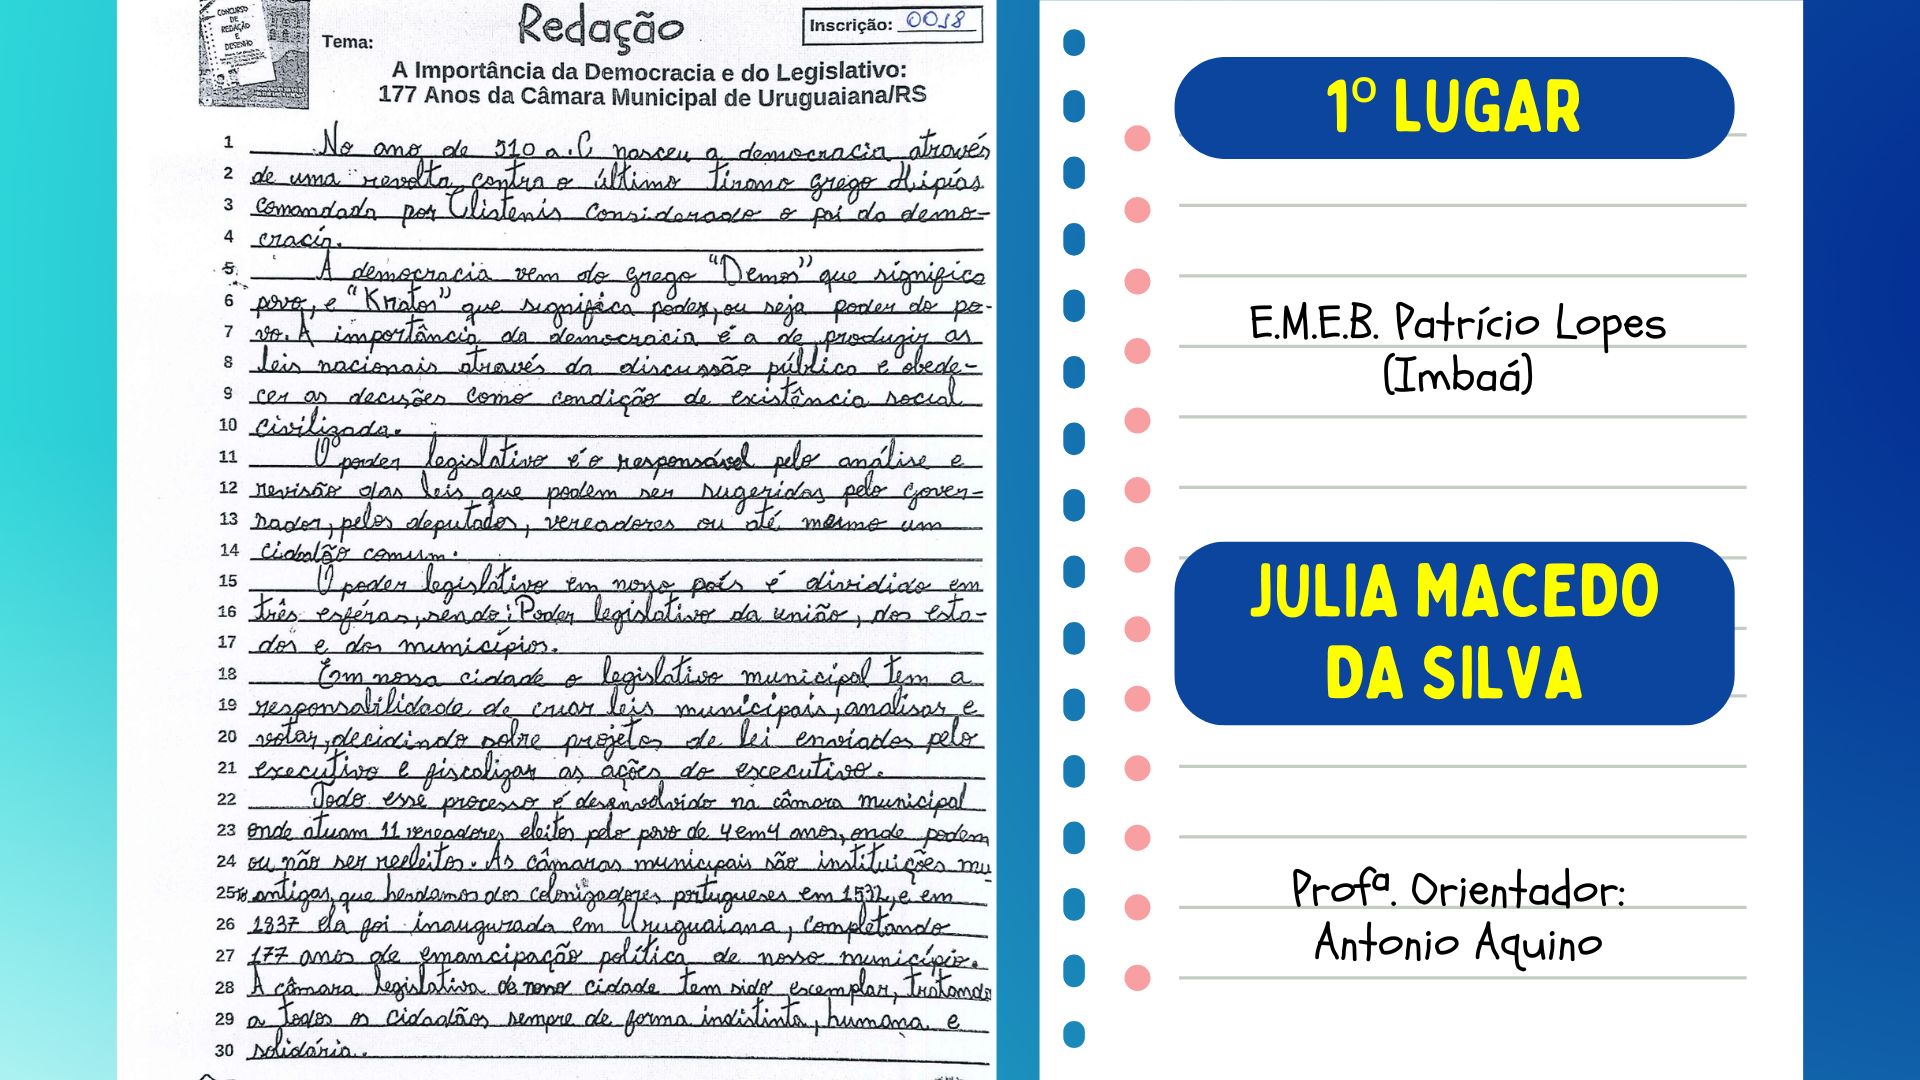 CONCURSO
DE
REDAÇÃO
E
DESENHO
Tema:
Redação
Inscrição: 0018
A Importância da Democracia e do Legislativo:
177 Anos da Câmara Municipal de Uruguaiana/RS
1 No ano de 510 a.C nasceu a democracia através
2 de uma revolta contra o último tirano grego Hipías
3 comandada por Clistenis considerado o pai da demo-
4 cracia.
5 A democracia vem do grego "Demos" que significa
6 povo, e "Kratos" que significa poder, ou seja poder do po-
7 vo. A importância da democracia é a de produzir as
8 leis nacionais através da discussão pública e obede-
9 cer as decisões como condição de existência social
10 civilizada.
11 O poder legislativo é o responsável pelo análise e
12 revisão das leis que podem ser sugeridas pelo gover-
13 nador, pelos deputados, vereadores ou até mesmo um
14 cidadão comum.
15 O poder legislativo em nosso país é dividido em
16 três esféras, sendo: Poder legislativo da união, dos esta-
17 dos e dos municípios.
18 Em nossa cidade o legislativo municipal tem a
19 responsabilidade de criar leis municipais, analisar e
20 votar, decidindo sobre projetos de lei enviados pelo
21 executivo e fiscalizar as ações do excecutivo.
22 Todo esse processo é desenvolvido na câmara municipal
23 onde atuam 11 vereadores eleitos pelo povo de 4 em 4 anos, onde podem
24 ou não ser reeleitos. As câmaras municipais são instituições mu
25 antigas, que herdamos dos colonizadores portugueses em 1532, e em
26 1837 ela foi inaugurada em Uruguaiana, completando
27 177 anos de emancipação política de nosso município.
28 A câmara legislativa de nossa cidade tem sido excemplar, tratando
29 a todos os cidadãos sempre de forma indistinta, humana e
30 solidária.
1º LUGAR
E.M.E.B. Patrício Lopes
(Imbaá)
JULIA MACEDO
DA SILVA
Profª. Orientador:
Antonio Aquino